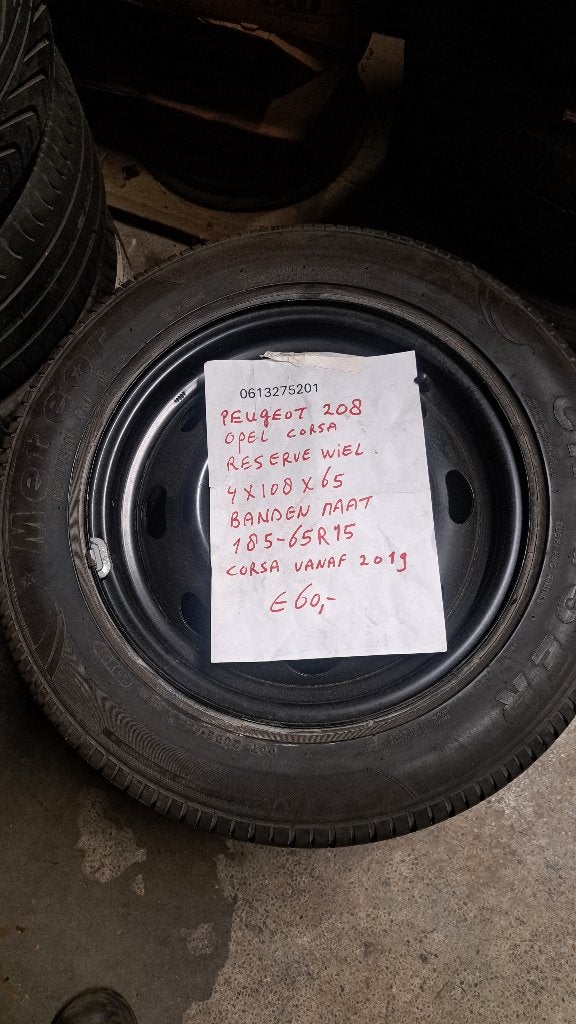 0613275201
PEUGEOT 208
OPEL CORSA
RESERVE WIEL.
4 X 108 X 65
BANDEN MAAT
185-65R15
CORSA VANAF 2019
€ 60,-
Meteor